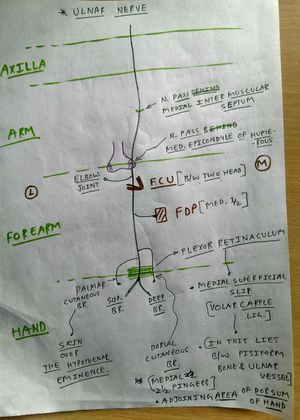 * ULNAR NERVE
AXILLA
N. PASS BEHIND
MEDIAL INTERMUSCULAR
SEPTUM
ARM
N. PASS BEHIND
MED. EPICONDYLE OF HUME-
ROUS
ELBOW
JOINT
FCU [B/W TWO HEAD]
L
M
FDP [MED. 1/2]
FOREARM
FLEXOR RETINACULUM
PALMAR
CUTANEOUS
BR.
SUP.
BR.
DEEP
BR.
• MEDIAL SUPERFICIAL
SLIP
[VOLAR CARPLE
LIG.]
HAND
SKIN
OVER
THE HYPOTHENAR
EMINENCE.
DORSAL
CUTANEOUS
BR.
• IN THIS LIES
B/W PISIFORM
BONE & ULNAR
VESSEL
* [MEDIAL
2 1/2 FINGERS]
• ADJOINING AREA OF DORSUM
OF HAND